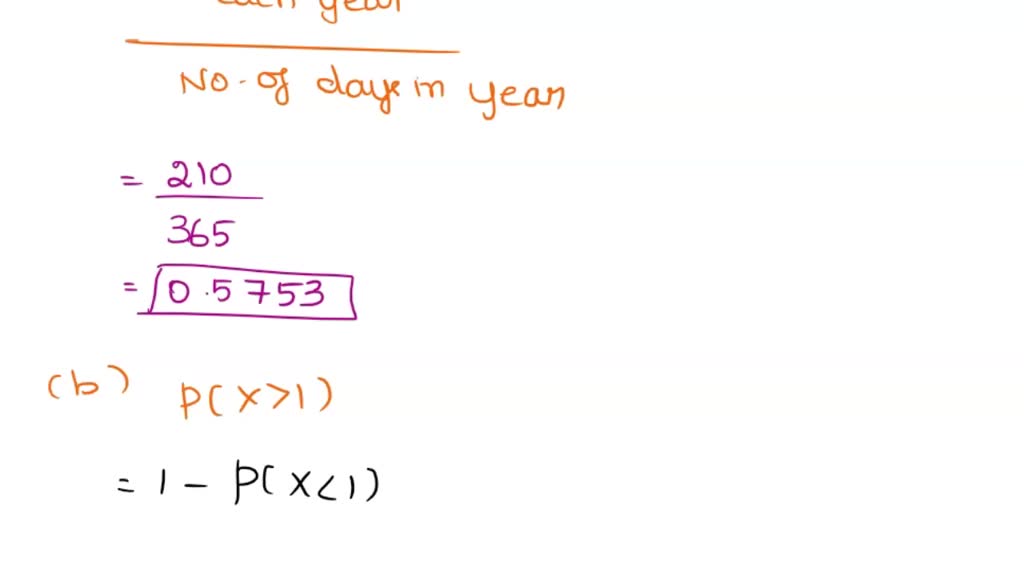 each year
No. of days in year
= 210
365
= 0.5753
(b) P(X>1)
= 1 - P(X<1)